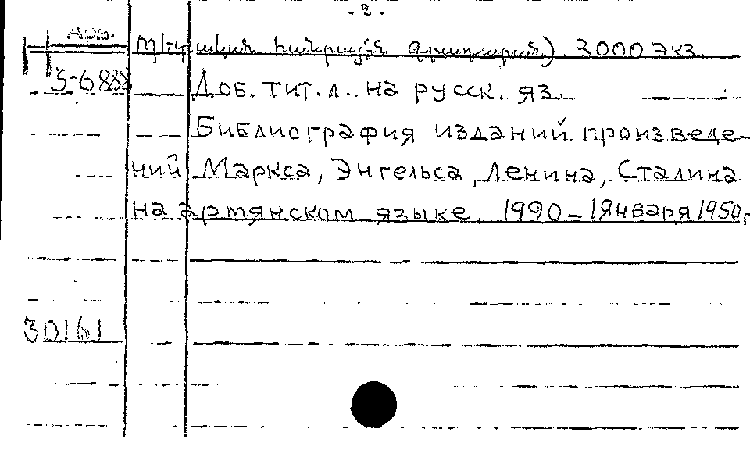 - 2. -
3000 экз.
Доб. тит. л. на русск. яз.
Библиография изданий произведе-
ний Маркса, Энгельса, Ленина, Сталина
на армянском языке. 1990 - 1 января 1950,
30161